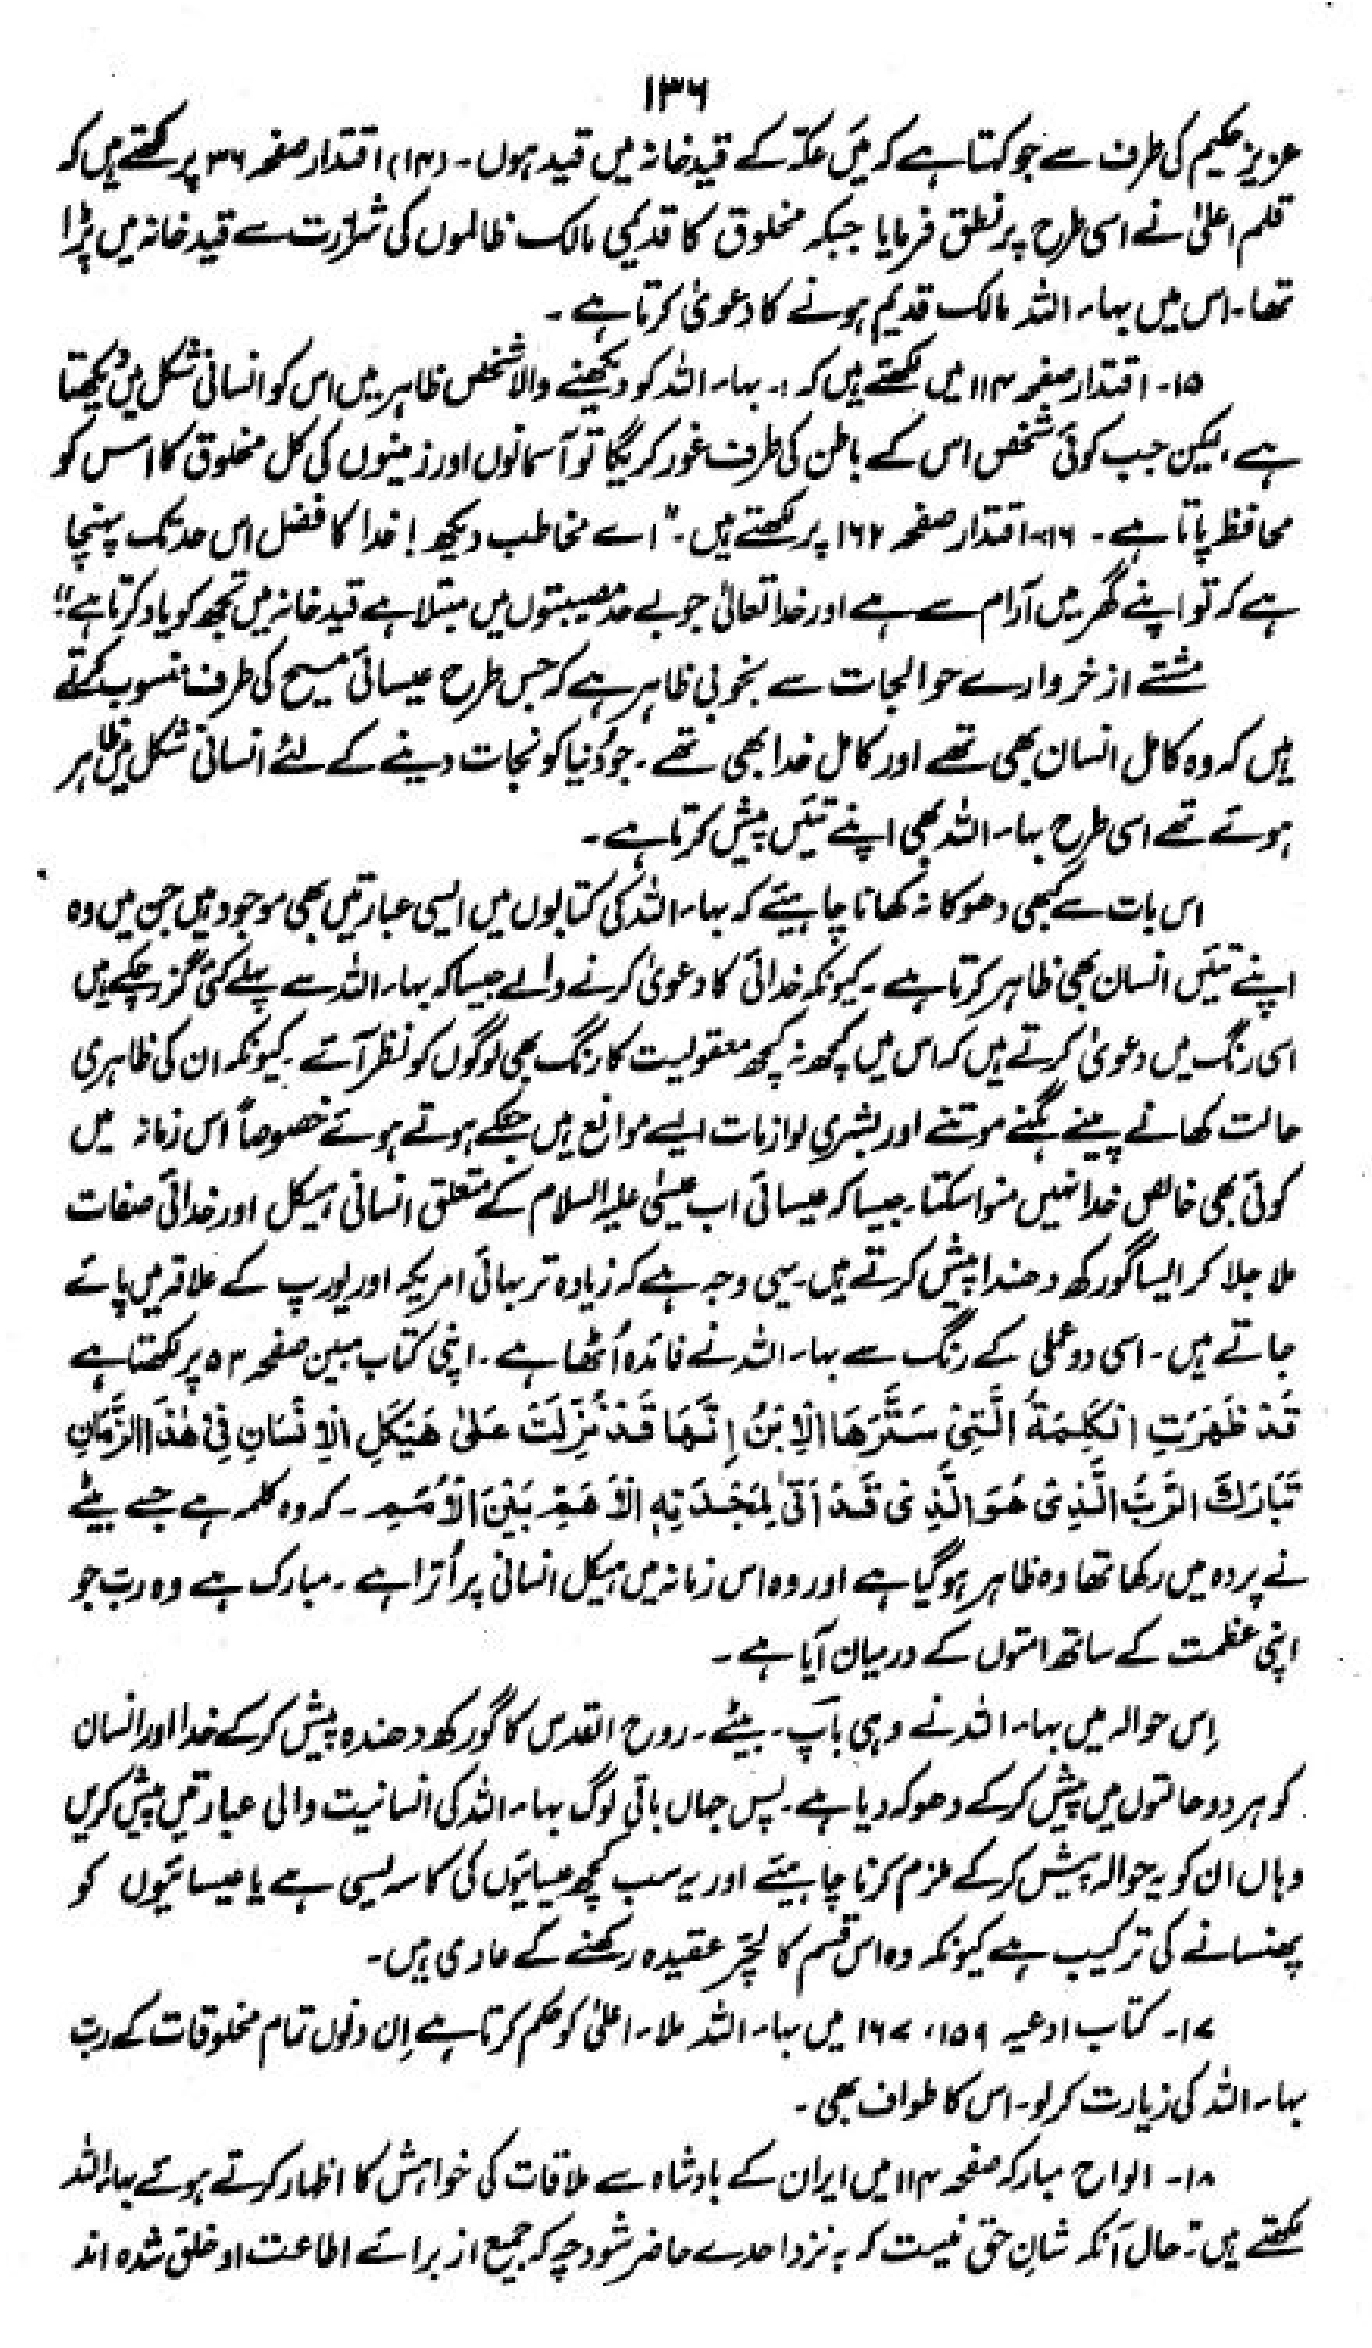 ۱۳۶
عزیز حکیم کی طرف سے جو کہتا ہے کہ میں عکّہ کے قید خانہ میں قید ہوں۔ (۱۴) اقتدار صفحہ ۳۶ پر لکھتے ہیں کہ
قلم اعلیٰ نے اسی طرح پر نطق فرمایا جبکہ مخلوق کا قدیمی مالک ظالموں کی شرارت سے قید خانہ میں پڑا
تھا۔ اس میں بہاء اللہ مالک قدیم ہونے کا دعویٰ کرتا ہے۔
۱۵۔ اقتدار صفحہ ۱۱۴ میں لکھتے ہیں کہ :۔ بہاء اللہ کو دیکھنے والا شخص ظاہر میں اس کو انسانی شکل میں دیکھتا
ہے، لیکن جب کوئی شخص اس کے باطن کی طرف غور کریگا تو آسمانوں اور زمینوں کی کل مخلوق کا اس کو
محافظ پاتا ہے۔ ۱۶۔ اقتدار صفحہ ۱۶۲ پر لکھتے ہیں۔ "اے مخاطب دیکھ! خدا کا فضل اس حد تک پہنچا
ہے کہ تو اپنے گھر میں آرام سے ہے اور خدا تعالیٰ جو بے حد مصیبتوں میں مبتلا ہے قید خانہ میں تجھ کو یاد کرتا ہے"
مشتے از خروارے حوالجات سے بخوبی ظاہر ہے کہ جس طرح عیسائی مسیح کی طرف منسوب کرتے
ہیں کہ وہ کامل انسان بھی تھے اور کامل خدا بھی تھے۔ جو دُنیا کو نجات دینے کے لئے انسانی شکل میں ظاہر
ہوئے تھے اسی طرح بہاء اللہ بھی اپنے تئیں پیش کرتا ہے۔
اس بات سے کبھی دھوکا نہ کھانا چاہیئے کہ بہاء اللہ کی کتابوں میں ایسی عبارتیں بھی موجود ہیں جن میں وہ
اپنے تئیں انسان بھی ظاہر کرتا ہے۔ کیونکہ خدائی کا دعویٰ کرنے والے جیسا کہ بہاء اللہ سے پہلے کئی گزر چکے ہیں
اسی رنگ میں دعویٰ کرتے ہیں کہ اس میں کچھ نہ کچھ معقولیت کا رنگ بھی لوگوں کو نظر آئے۔ کیونکہ ان کی ظاہری
حالت کھانے پینے ہگنے موتنے اور بشری لوازمات ایسے موانع ہیں جنکے ہوتے ہوئے خصوصاً اس زمانہ میں
کوئی بھی خالص خدا نہیں منوا سکتا۔ جیسا کہ عیسائی اب عیسیٰ علیہ السلام کے متعلق انسانی ہیکل اور خدائی صفات
ملا جلا کر ایسا گورکھ دھندا پیش کرتے ہیں۔ یہی وجہ ہے کہ زیادہ تر بہائی امریکہ اور یورپ کے علاقہ میں پائے
جاتے ہیں۔ اسی دو عملی کے رنگ سے بہاء اللہ نے فائدہ اُٹھا ہے۔ اپنی کتاب مبین صفحہ ۵۳ پر لکھتا ہے
قَدْ ظَهَرَتِ الْكَلِمَةُ الَّتِیْ سَتَّرَهَا الْاِبْنُ اِنَّهَا قَدْ نُزِّلَتْ عَلیٰ هَيْكَلِ الْاِنْسَانِ فِیْ هٰذَا الزَّمَانِ
تَبَارَكَ الرَّبُّ الَّذِیْ هُوَ الَّذِیْ قَدْ اَتیٰ بِمَجْدِهٖ الْاَعْظَمِ بَيْنَ الْاُمَمِ۔ کہ وہ کلمہ ہے جسے بیٹے
نے پردہ میں رکھا تھا وہ ظاہر ہو گیا ہے اور وہ اس زمانہ میں ہیکل انسانی پر اُترا ہے۔ مبارک ہے وہ ربّ جو
اپنی عظمت کے ساتھ امتوں کے درمیان آیا ہے۔
اِس حوالہ میں بہاء اللہ نے وہی باپ۔ بیٹے۔ روح القدس کا گورکھ دھندہ پیش کرکے خدا اور انسان
کو ہر دو حالتوں میں پیش کرکے دھوکہ دیا ہے۔ پس جہاں باقی لوگ بہاء اللہ کی انسانیت والی عبارتیں پیش کریں
وہاں ان کو یہ حوالہ پیش کرکے ملزم کرنا چاہیئے اور یہ سب کچھ عیسائیوں کی کاسہ لیسی ہے یا عیسائیوں کو
پھنسانے کی ترکیب ہے کیونکہ وہ اس قسم کا لچر عقیدہ رکھنے کے عادی ہیں۔
۱۷۔ کتاب ادعیہ ۱۵۹، ۱۶۷ میں بہاء اللہ ملاء اعلیٰ کو حکم کرتا ہے اِن دنوں تمام مخلوقات کے ربّ
بہاء اللہ کی زیارت کر لو۔ اس کا طواف بھی۔
۱۸۔ الواح مبارکہ صفحہ ۱۱۴ میں ایران کے بادشاہ سے ملاقات کی خواہش کا اظہار کرتے ہوئے بہاء اللہ
لکھتے ہیں: حال آنکہ شانِ حق نیست کہ بہ نزد احدے حاضر شود چہ کہ جمیع از برائے اطاعت او خلق شدہ اند